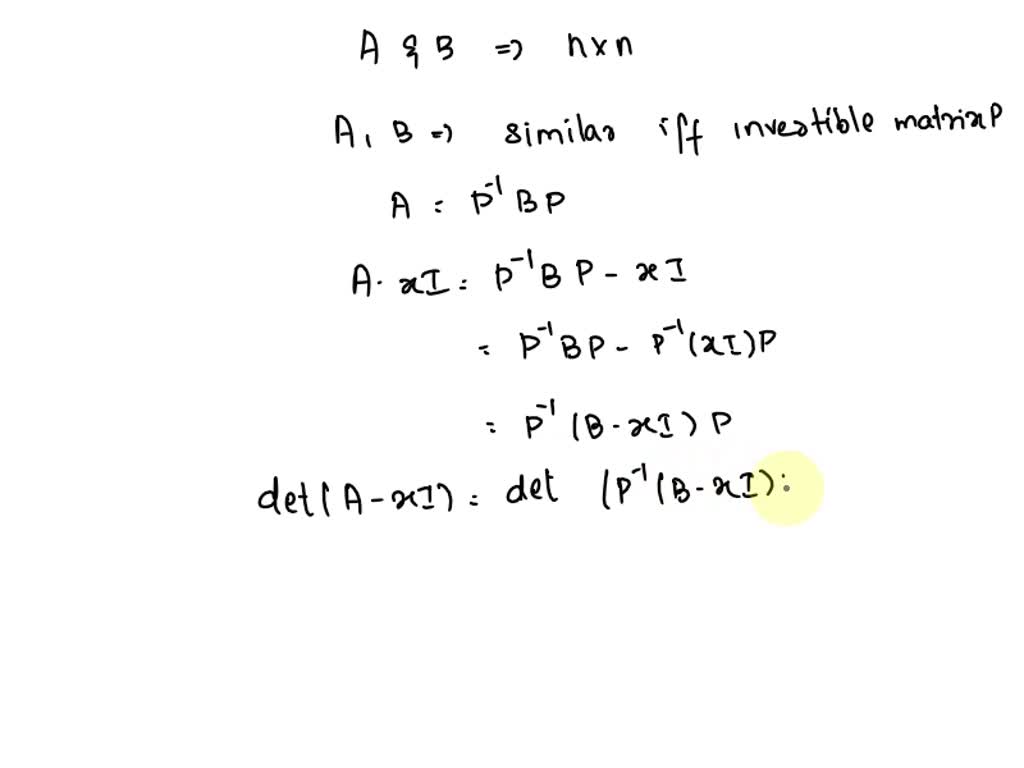 A & B => n×n
A, B => similar iff invertible matrix P
A = P⁻¹ B P
A - xI = P⁻¹ B P - xI
= P⁻¹ B P - P⁻¹ (xI) P
= P⁻¹ (B - xI) P
det(A - xI) = det (P⁻¹ (B - xI)